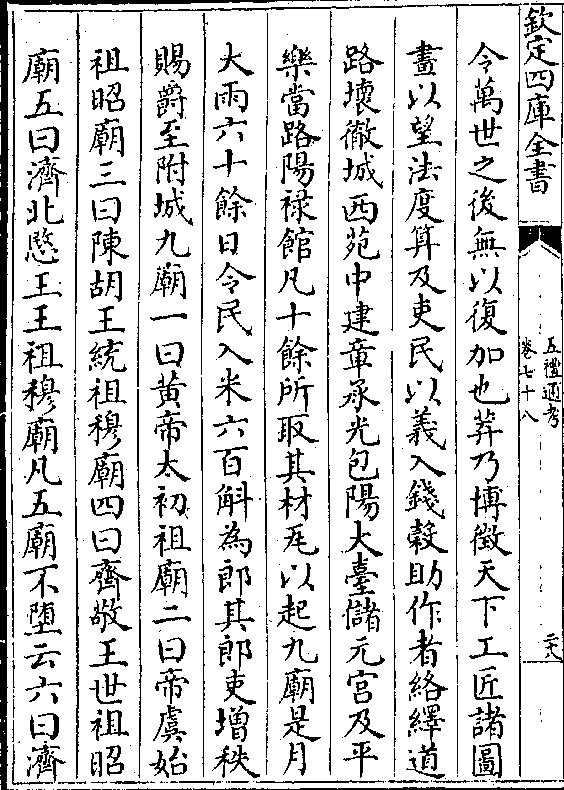 欽定四庫全書
五禮通考
卷七十八
二六
令萬世之後無以復加也莽乃博徵天下工匠諸圖
畫以望法度算及吏民以義入錢穀助作者絡繹道
路壞徹城西苑中建章承光包陽大臺儲元宫及平
樂當路陽禄館凡十餘所取其材瓦以起九廟是月
大雨六十餘日令民入米六百斛為郎其郎吏增秩
賜爵至附城九廟一曰黄帝太初祖廟二曰帝虞始
祖昭廟三曰陳胡王統祖穆廟四曰齊敬王世祖昭
廟五曰濟北愍王王祖穆廟凡五廟不墮云六曰濟